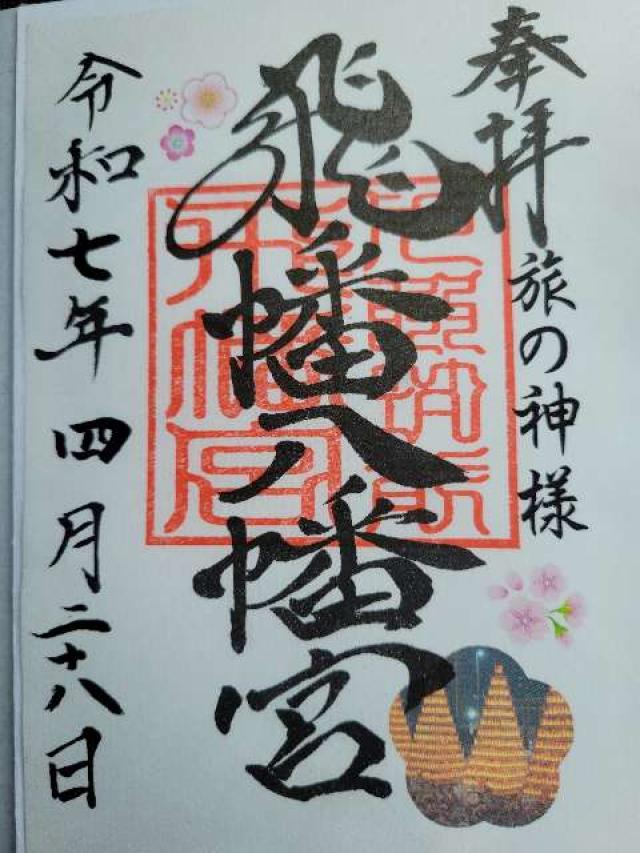 奉拝
旅の神様
飛幡八幡宮
令和七年四月二十八日